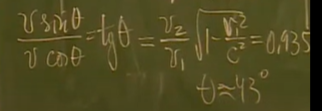 v sinθ / v cosθ = tgθ = v₂/v₁ √(1 - v₁²/c²) = 0,935
θ ≈ 43°